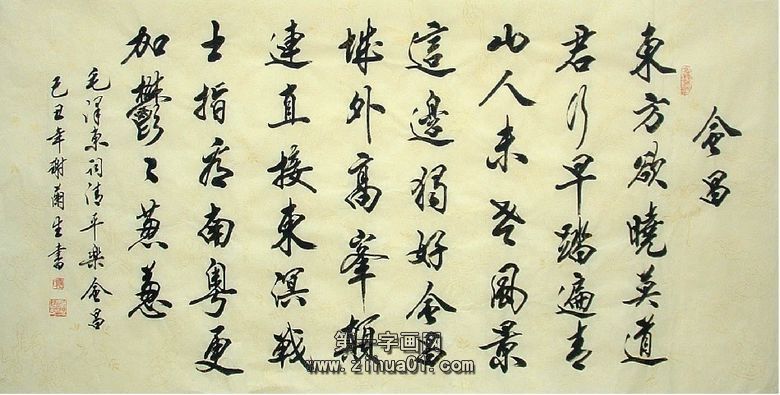 会昌
東方欲曉莫道
君行早踏遍青
山人未老風景
這邊獨好会昌
城外高峯顛
連直接東溟戰
士指看南粵更
加鬱々葱葱
毛澤東詞清平樂会昌
己丑年謝蘭生書
第一字画网
www.zihua01.com